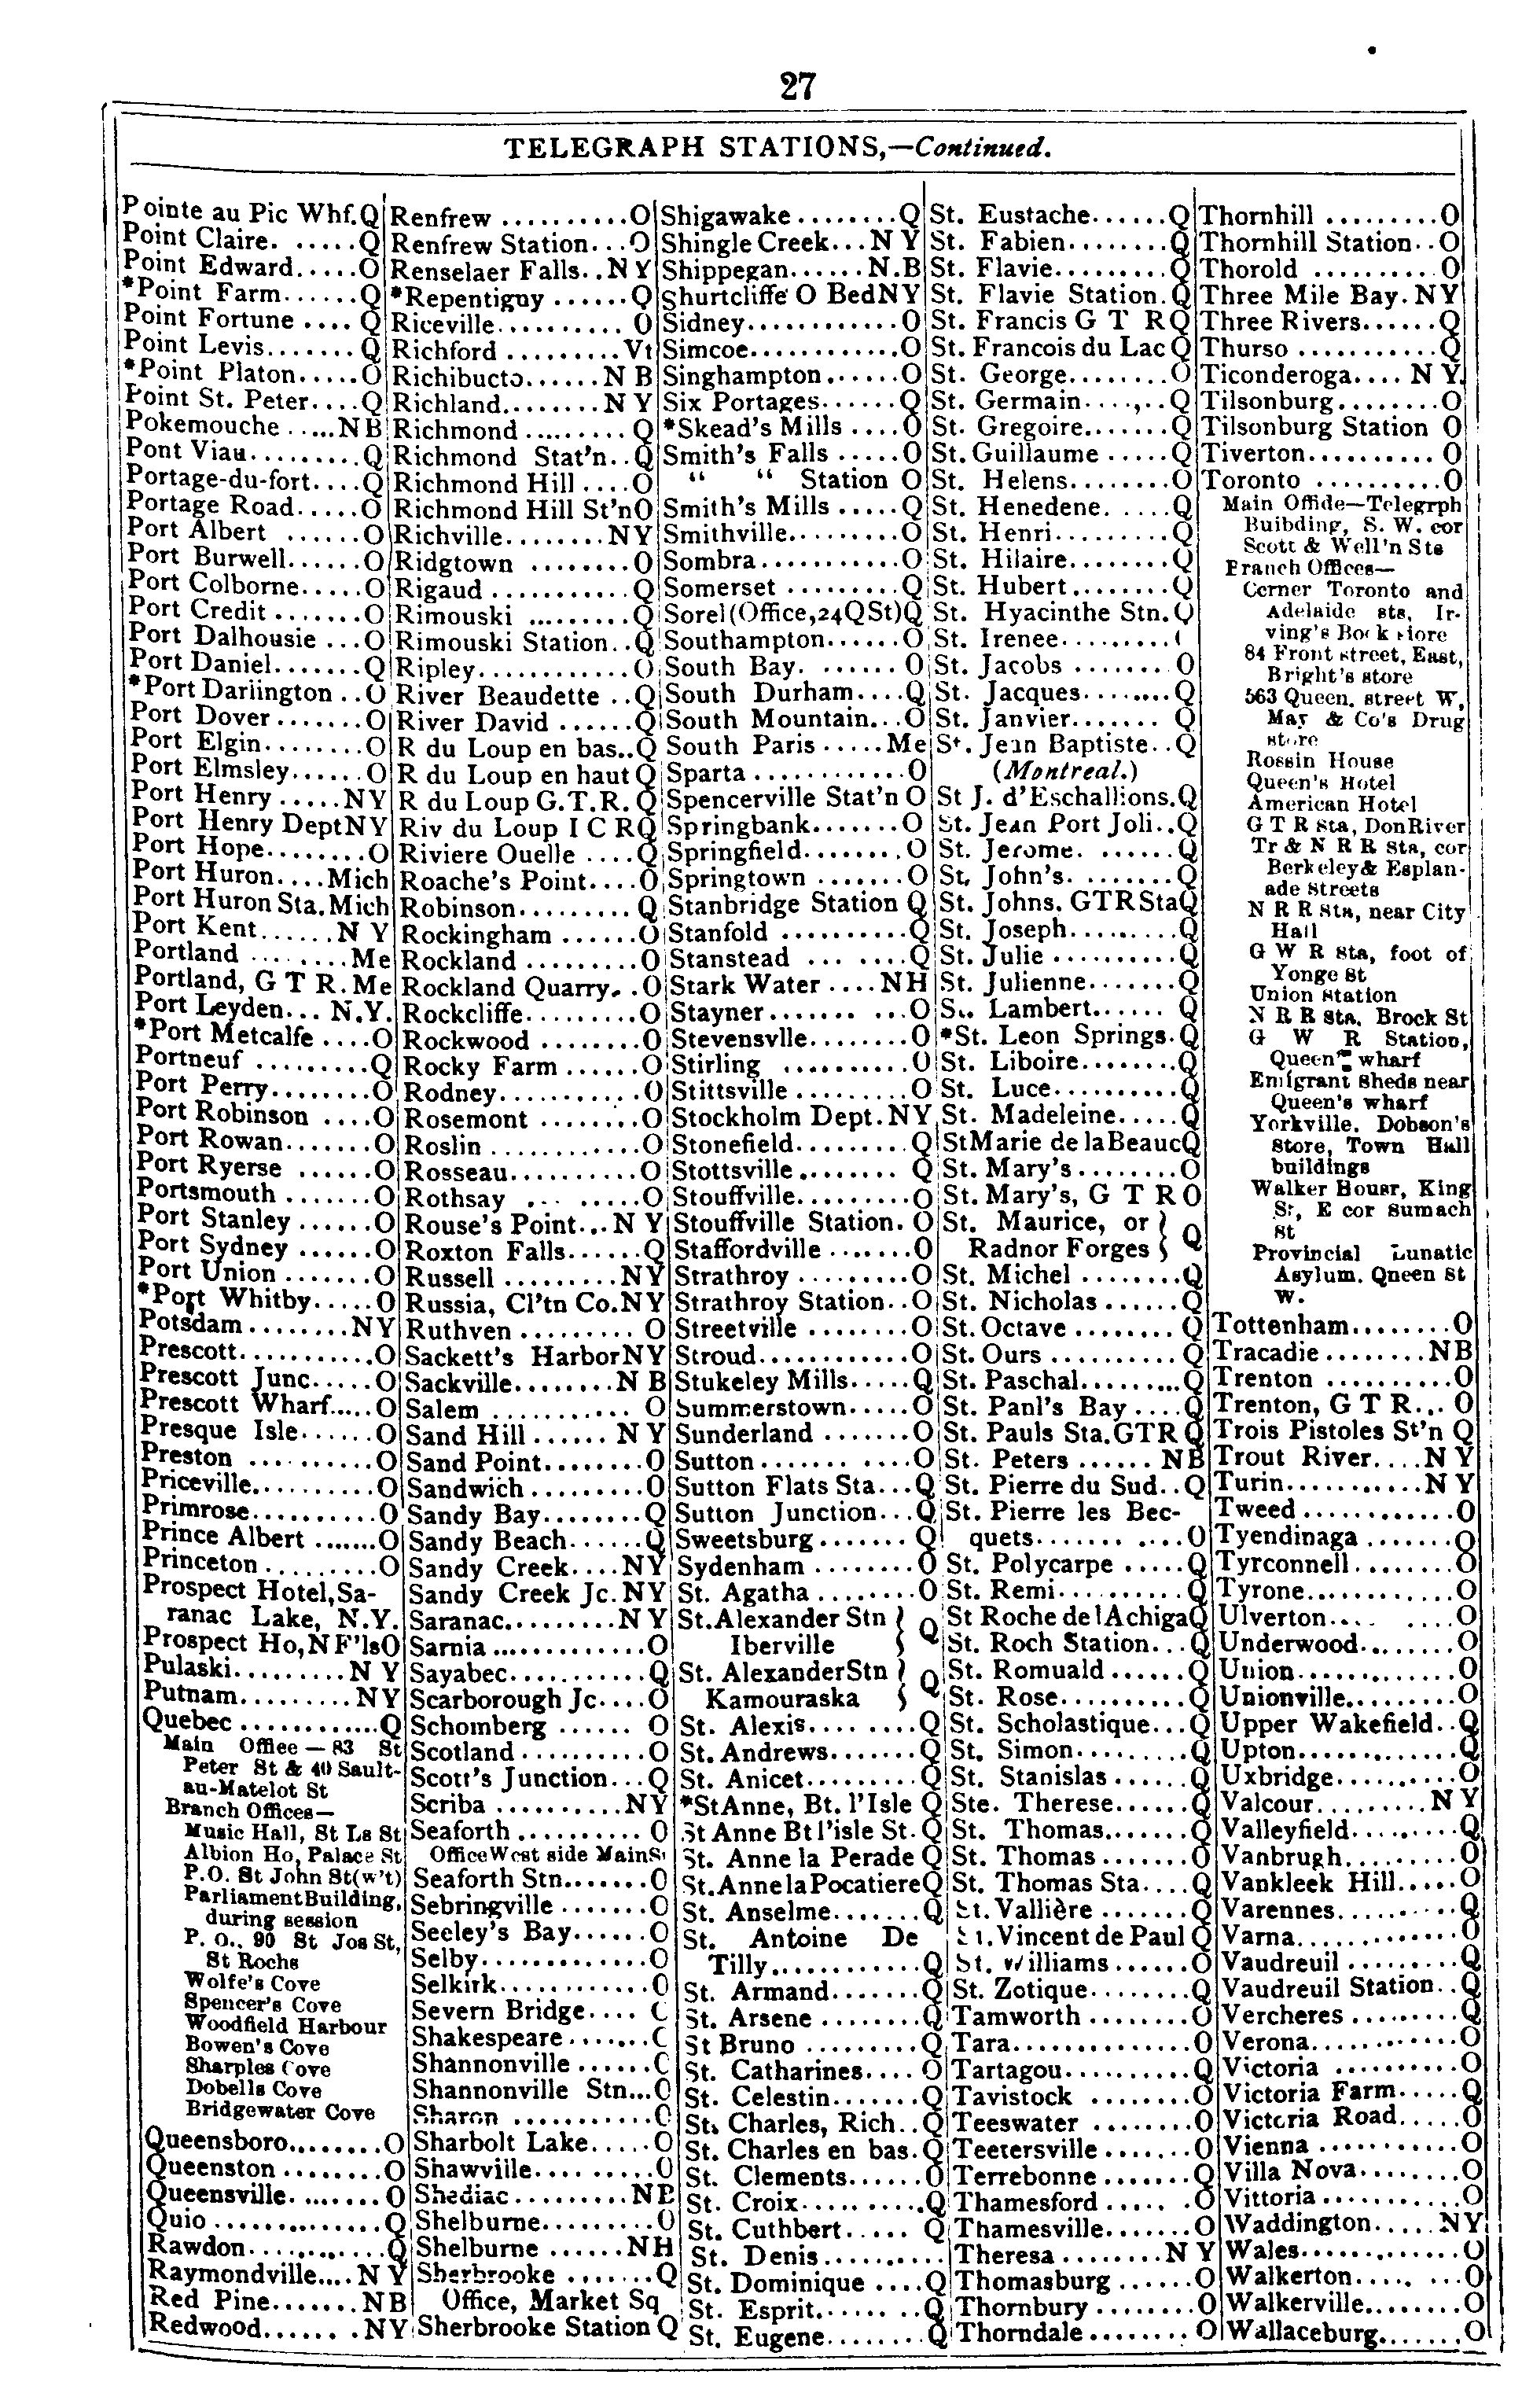 27
TELEGRAPH STATIONS,—Continued.
Pointe au Pic Whf.Q
Point Claire. .....Q
Point Edward.....O
*Point Farm......Q
Point Fortune .... Q
Point Levis....... Q
*Point Platon.....O
Point St. Peter....Q
Pokemouche .....NB
Pont Viau.........Q
Portage-du-fort....Q
Portage Road.....O
Port Albert ......O
Port Burwell......O
Port Colborne.....O
Port Credit .......O
Port Dalhousie ...O
Port Daniel.......Q
*Port Dariington ..O
Port Dover .......O
Port Elgin........O
Port Elmsley......O
Port Henry .....NY
Port Henry DeptNY
Port Hope........O
Port Huron....Mich
Port Huron Sta.Mich
Port Kent......N Y
Portland ........Me
Portland, G T R.Me
Port Leyden... N.Y.
*Port Metcalfe ....O
Portneuf .........Q
Port Perry........O
Port Robinson ....O
Port Rowan.......O
Port Ryerse ......O
Portsmouth .......O
Port Stanley ......O
Port Sydney ......O
Port Union .......O
*Port Whitby.....O
Potsdam ........NY
Prescott...........O
Prescott Junc.....O
Prescott Wharf.....O
Presque Isle......O
Preston ..........O
Priceville..........O
Primrose..........O
Prince Albert .......O
Princeton .........O
Prospect Hotel,Sa-
ranac Lake, N.Y.
Prospect Ho,N F'lsO
Pulaski.........N Y
Putnam.........NY
Quebec ............Q
Main Offiee — 83 St
Peter St & 40 Sault-
au-Matelot St
Branch Offices—
Music Hall, St Ls St
Albion Ho, Palace St
P.O. St John St(w't)
ParliamentBuilding,
during session
P. O.. 90 St Jos St,
St Rochs
Wolfe's Cove
Spencer's Cove
Woodfield Harbour
Bowen's Cove
Sharples Cove
Dobells Cove
Bridgewater Cove
Queensboro........O
Queenston ........O
Queensville. .......O
Quio ..............Q
Rawdon...........Q
Raymondville....N Y
Red Pine.......NB
Redwood...... .NY
Renfrew ..........O
Renfrew Station...O
Renselaer Falls..NY
*Repentiguy ......Q
Riceville.......... O
Richford .........Vt
Richibucto......N B
Richland........N Y
Richmond .........Q
Richmond Stat'n..Q
Richmond Hill ....O
Richmond Hill St'nO
Richville........NY
Ridgtown ........O
Rigaud ...........Q
Rimouski .........Q
Rimouski Station..Q
Ripley............O
River Beaudette ..Q
River David ......Q
R du Loup en bas..Q
R du Loup en haut Q
R du Loup G.T.R. Q
Riv du Loup I C RQ
Riviere Ouelle ....Q
Roache's Point....O
Robinson......... Q
Rockingham ......O
Rockland .........O
Rockland Quarry. .O
Rockcliffe.........O
Rockwood ........O
Rocky Farm ......O
Rodney...........O
Rosemont ........O
Roslin ............O
Rosseau...........O
Rothsay ... .....O
Rouse's Point...N Y
Roxton Falls......Q
Russell .........NY
Russia, Cl'tn Co.NY
Ruthven ......... O
Sackett's HarborNY
Sackville........N B
Salem ........... O
Sand Hill ...... N Y
Sand Point........O
Sandwich .........O
Sandy Bay........Q
Sandy Beach......Q
Sandy Creek....NY
Sandy Creek Jc.NY
Saranac.........N Y
Sarnia ............O
Sayabec...........Q
Scarborough Jc....O
Schomberg ...... O
Scotland ..........O
Scott's Junction...Q
Scriba ..........NY
Seaforth .......... O
OfficeWest side MainSt
Seaforth Stn.......O
Sebringville .......O
Seeley's Bay......O
Selby.............O
Selkirk............O
Severn Bridge....
Shakespeare .......
Shannonville ......
Shannonville Stn...O
Sharon ............
Sharbolt Lake.....O
Shawville..........O
Shediac.........NB
Shelburne.........O
Shelburne ......NH
Sherbrooke .......Q
Office, Market Sq
Sherbrooke Station Q
Shigawake ........Q
Shingle Creek...N Y
Shippegan......N.B
Shurtcliffe O BedNY
Sidney............O
Simcoe............O
Singhampton......O
Six Portages......Q
*Skead's Mills ....O
Smith's Falls .....O
“ “ Station O
Smith's Mills .....Q
Smithville.........O
Sombra...........O
Somerset .........Q
Sorel(Office,24QSt)Q
Southampton......O
South Bay. ......O
South Durham....Q
South Mountain...O
South Paris .....Me
Sparta ............O
Spencerville Stat'n O
Springbank.......O
Springfield........O
Springtown .......O
Stanbridge Station Q
Stanfold ..........Q
Stanstead ... ....Q
Stark Water ....NH
Stayner....... ...O
Stevensvlle........O
Stirling ..........O
Stittsville .........O
Stockholm Dept.NY
Stonefield.........Q
Stottsville......... Q
Stouffville.........O
Stouffville Station. O
Staffordville .......O
Strathroy .........O
Strathroy Station..O
Streetville ........O
Stroud............O
Stukeley Mills.....Q
Summerstown.....O
Sunderland .......O
Sutton ....... ....O
Sutton Flats Sta...Q
Sutton Junction...Q
Sweetsburg ....... Q
Sydenham ........O
St. Agatha ........O
St.Alexander Stn } Q
Iberville
St. AlexanderStn } Q
Kamouraska
St. Alexis.... ....Q
St. Andrews.......Q
St. Anicet.........Q
*StAnne, Bt. l'Isle Q
St Anne Bt l'isle St.Q
St. Anne la Perade Q
St.AnnelaPocatiereQ
St. Anselme.......Q
St. Antoine De
Tilly............Q
St. Armand.......Q
St. Arsene ........Q
St Bruno .........Q
St. Catharines.... O
St. Celestin.......Q
St. Charles, Rich..Q
St. Charles en bas.Q
St. Clements......O
St. Croix..........Q
St. Cuthbert..... Q
St. Denis..........
St. Dominique ....Q
St. Esprit...... ..Q
St. Eugene........Q
St. Eustache......Q
St. Fabien........Q
St. Flavie.........Q
St. Flavie Station.Q
St. Francis G T RQ
St. Francois du Lac Q
St. George........O
St. Germain....,..Q
St. Gregoire.......Q
St. Guillaume .....Q
St. Helens........O
St. Henedene. ....Q
St. Henri.........Q
St. Hilaire........Q
St. Hubert........Q
St. Hyacinthe Stn.Q
St. Irenee.........
St. Jacobs ....... O
St. Jacques........Q
St. Janvier....... Q
St. Jean Baptiste..Q
(Montreal.)
St J. d'Eschallions.Q
St. Jean Port Joli..Q
St. Jerome. ......Q
St. John's. .......Q
St. Johns. GTRStaQ
St. Joseph.........Q
St. Julie ..........Q
St. Julienne.......Q
St. Lambert...... Q
*St. Leon Springs.Q
St. Liboire........Q
St. Luce..........Q
St. Madeleine.....Q
StMarie de laBeaucQ
St. Mary's ........O
St. Mary's, G T R O
St. Maurice, or } Q
Radnor Forges
St. Michel ........Q
St. Nicholas ......Q
St. Octave ........ Q
St. Ours .......... Q
St. Paschal.........Q
St. Panl's Bay ....Q
St. Pauls Sta.GTR Q
St. Peters ...... NB
St. Pierre du Sud..Q
St. Pierre les Bec-
quets....... ....O
St. Polycarpe .....Q
St. Remi..........Q
St Roche de lAchigaQ
St. Roch Station...Q
St. Romuald ......Q
St. Rose..........Q
St. Scholastique...Q
St. Simon.........Q
St. Stanislas ......Q
Ste. Therese......Q
St. Thomas.......Q
St. Thomas .......O
St. Thomas Sta....Q
St. Vallière .......Q
St. Vincent de Paul Q
St. Williams ......O
St. Zotique........Q
Tamworth ........O
Tara..............O
Tartagou..........Q
Tavistock ........O
Teeswater ........O
Teetersville .......O
Terrebonne .......Q
Thamesford ..... .O
Thamesville.......O
Theresa ........N Y
Thomasburg ......O
Thornbury ........O
Thorndale ........O
Thornhill .........O
Thornhill Station..O
Thorold ..........O
Three Mile Bay.NY
Three Rivers......Q
Thurso ...........Q
Ticonderoga.... N Y.
Tilsonburg........O
Tilsonburg Station O
Tiverton..........O
Toronto ..........O
Main Offide—Telegrph
Buibding, S. W. cor
Scott & Well'n Sts
Branch Offices—
Corner Toronto and
Adelaide sts, Ir-
ving's Book store
84 Front street, East,
Bright's store
563 Queen. street W,
May & Co's Drug
store
Rossin House
Queen's Hotel
American Hotel
G T R sta, DonRiver
Tr & N R R sta, cor
Berkeley& Esplan-
ade streets
N R R sta, near City
Hall
G W R sta, foot of
Yonge st
Union station
N R R sta. Brock St
G W R Station,
Queen's wharf
Emigrant Sheds near
Queen's wharf
Yorkville. Dobson's
store, Town Hall
buildings
Walker Housr, King
St, E cor Sumach
st
Provincial Lunatic
Asylum. Qneen st
W.
Tottenham........O
Tracadie ........NB
Trenton ..........O
Trenton, G T R... O
Trois Pistoles St'n Q
Trout River....N Y
Turin...........N Y
Tweed............O
Tyendinaga .......O
Tyrconnell........O
Tyrone............O
Ulverton.... ....O
Underwood........O
Union.............O
Unionville.........O
Upper Wakefield..Q
Upton............Q
Uxbridge..........O
Valcour.........N Y
Valleyfield.........Q
Vanbrugh.........O
Vankleek Hill.....O
Varennes..........Q
Varna.............O
Vaudreuil .........Q
Vaudreuil Station..Q
Vercheres .........Q
Verona............O
Victoria ..........O
Victoria Farm.....Q
Victoria Road.....O
Vienna ...........O
Villa Nova........O
Vittoria...........O
Waddington.....NY
Wales.............O
Walkerton.... ...O
Walkerville........O
Wallaceburg.......O